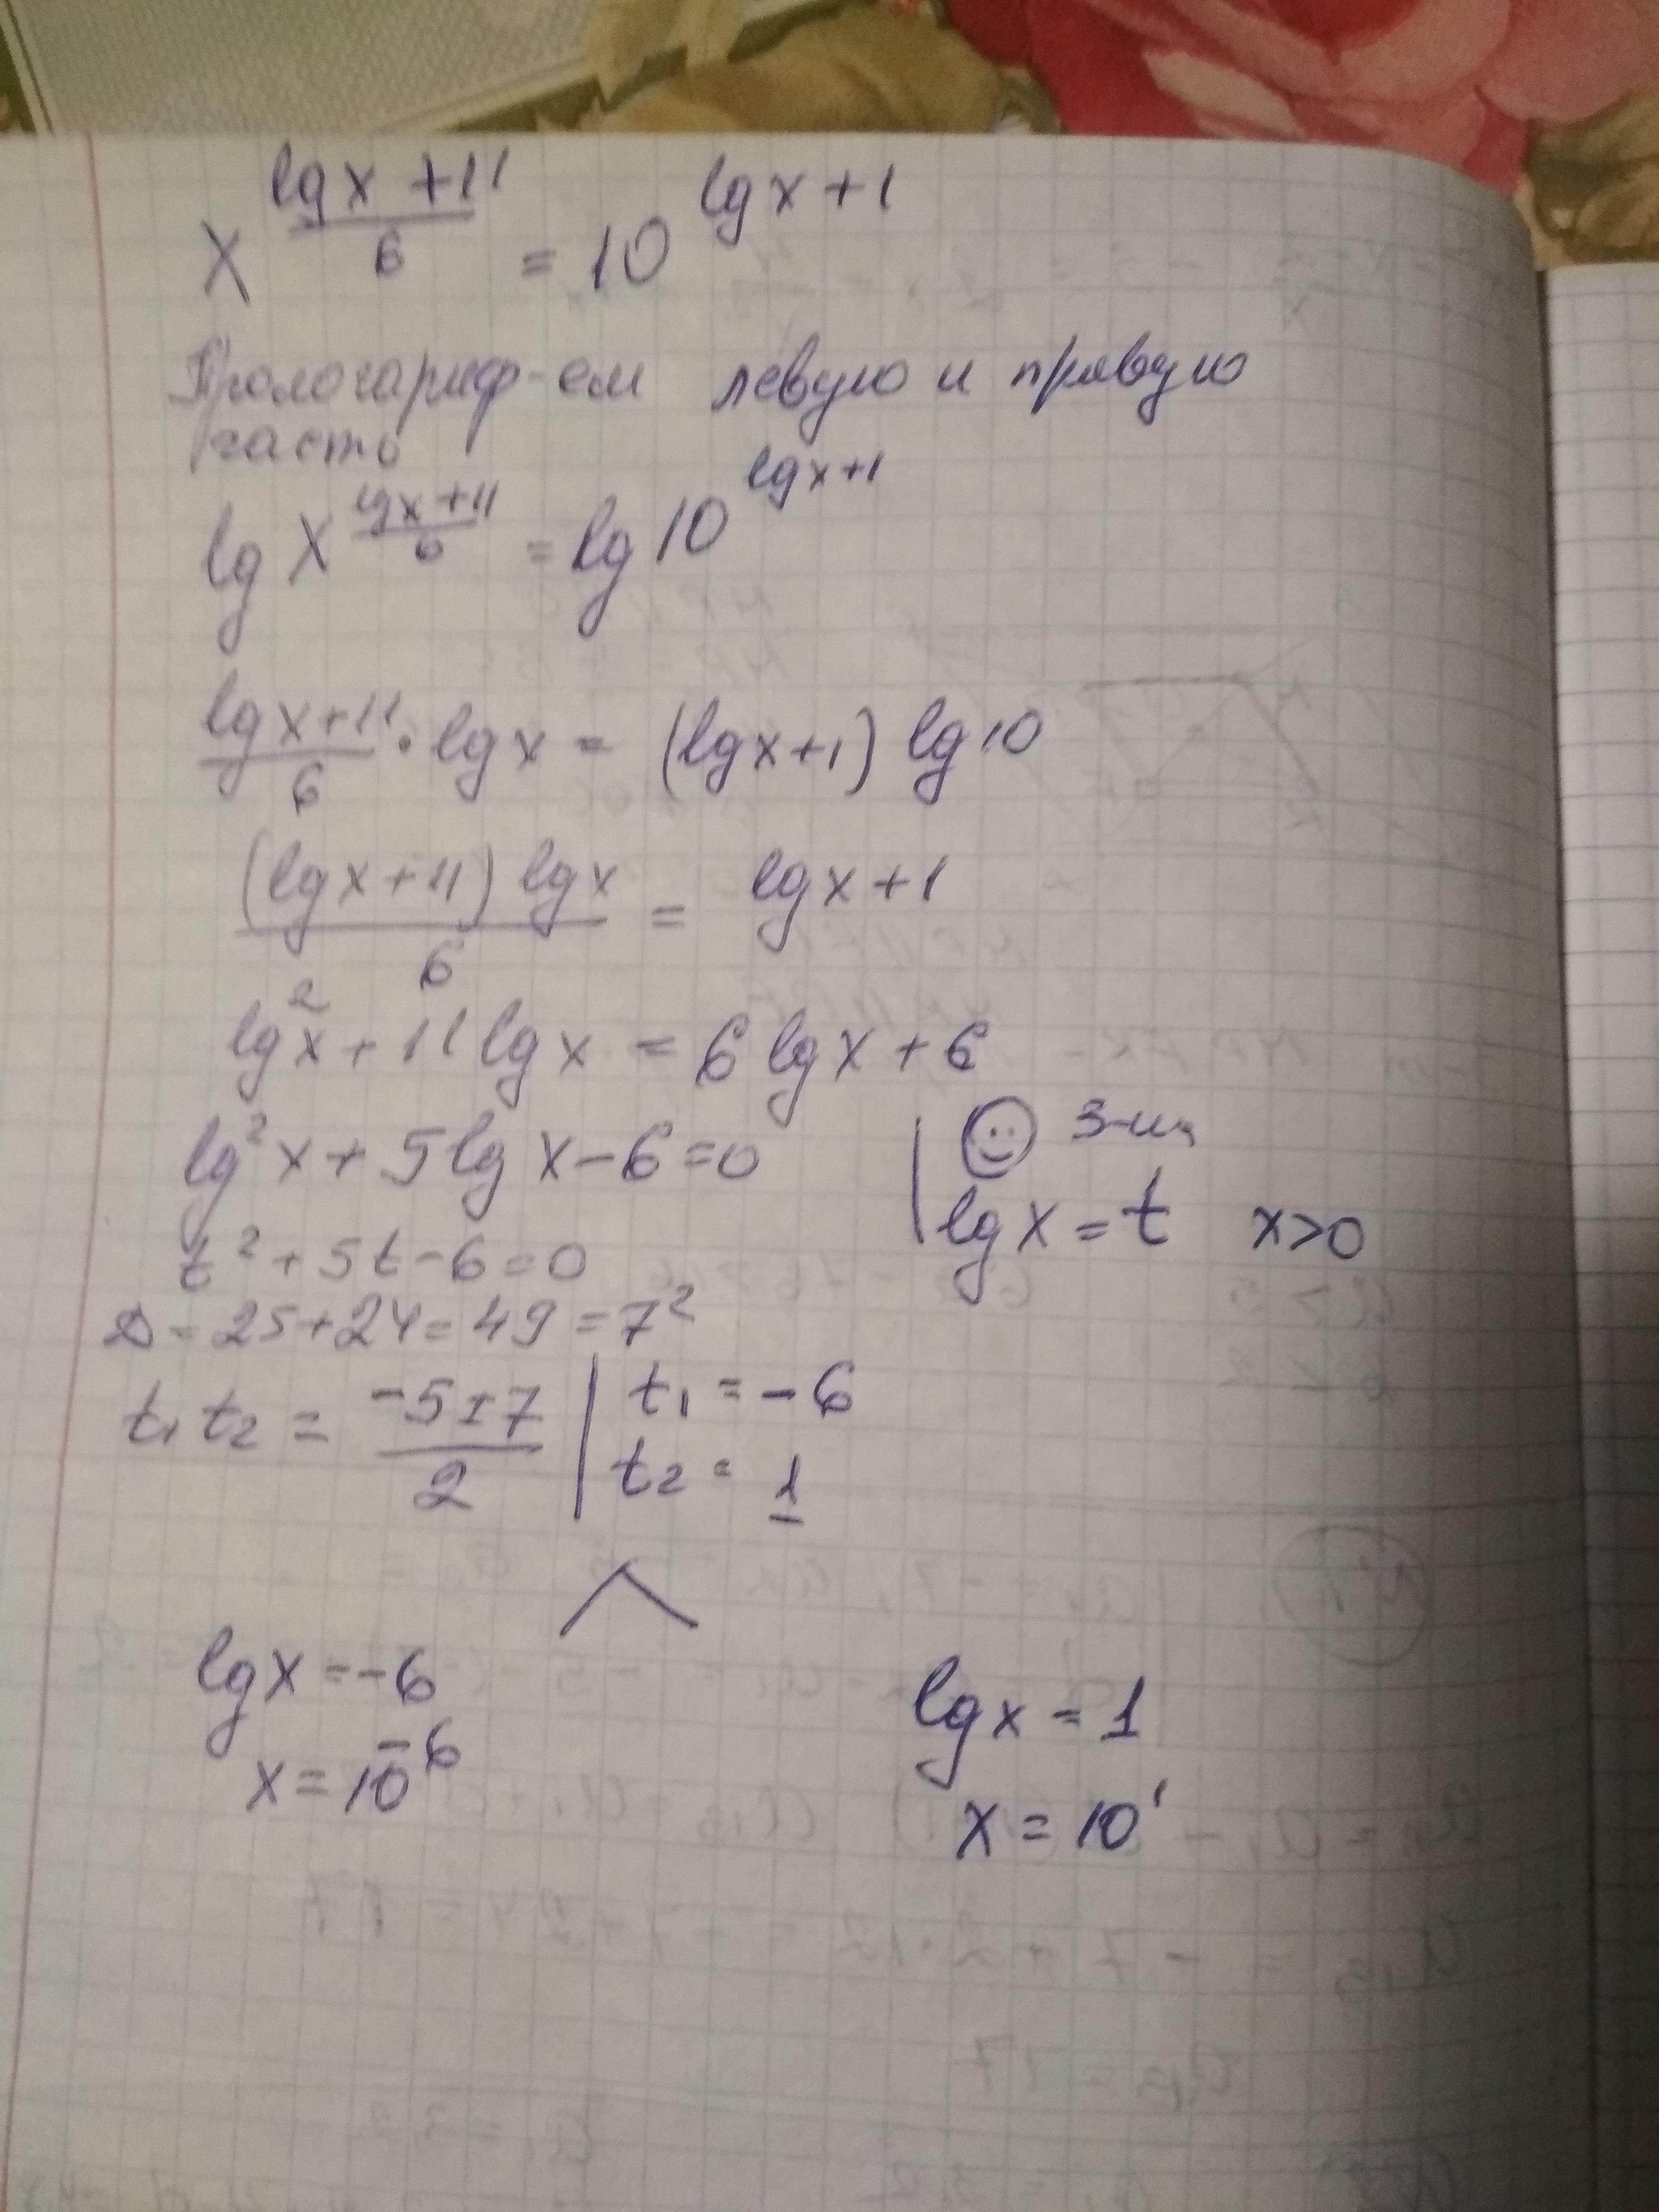 x^((lgx+11)/6) = 10^(lgx+1)
Прологариф-ем левую и правую
часть
lg x^((lgx+11)/6) = lg 10^(lgx+1)
(lgx+11)/6 · lgx = (lgx+1) lg10
((lgx+11) lgx)/6 = lgx+1
lg²x + 11 lgx = 6 lgx + 6
lg²x + 5 lgx - 6 = 0
lgx = t x>0
t² + 5t - 6 = 0
D = 25+24 = 49 = 7²
t₁ t₂ = (-5±7)/2 | t₁ = -6
t₂ = 1
lgx = -6
x = 10⁻⁶
lgx = 1
x = 10¹